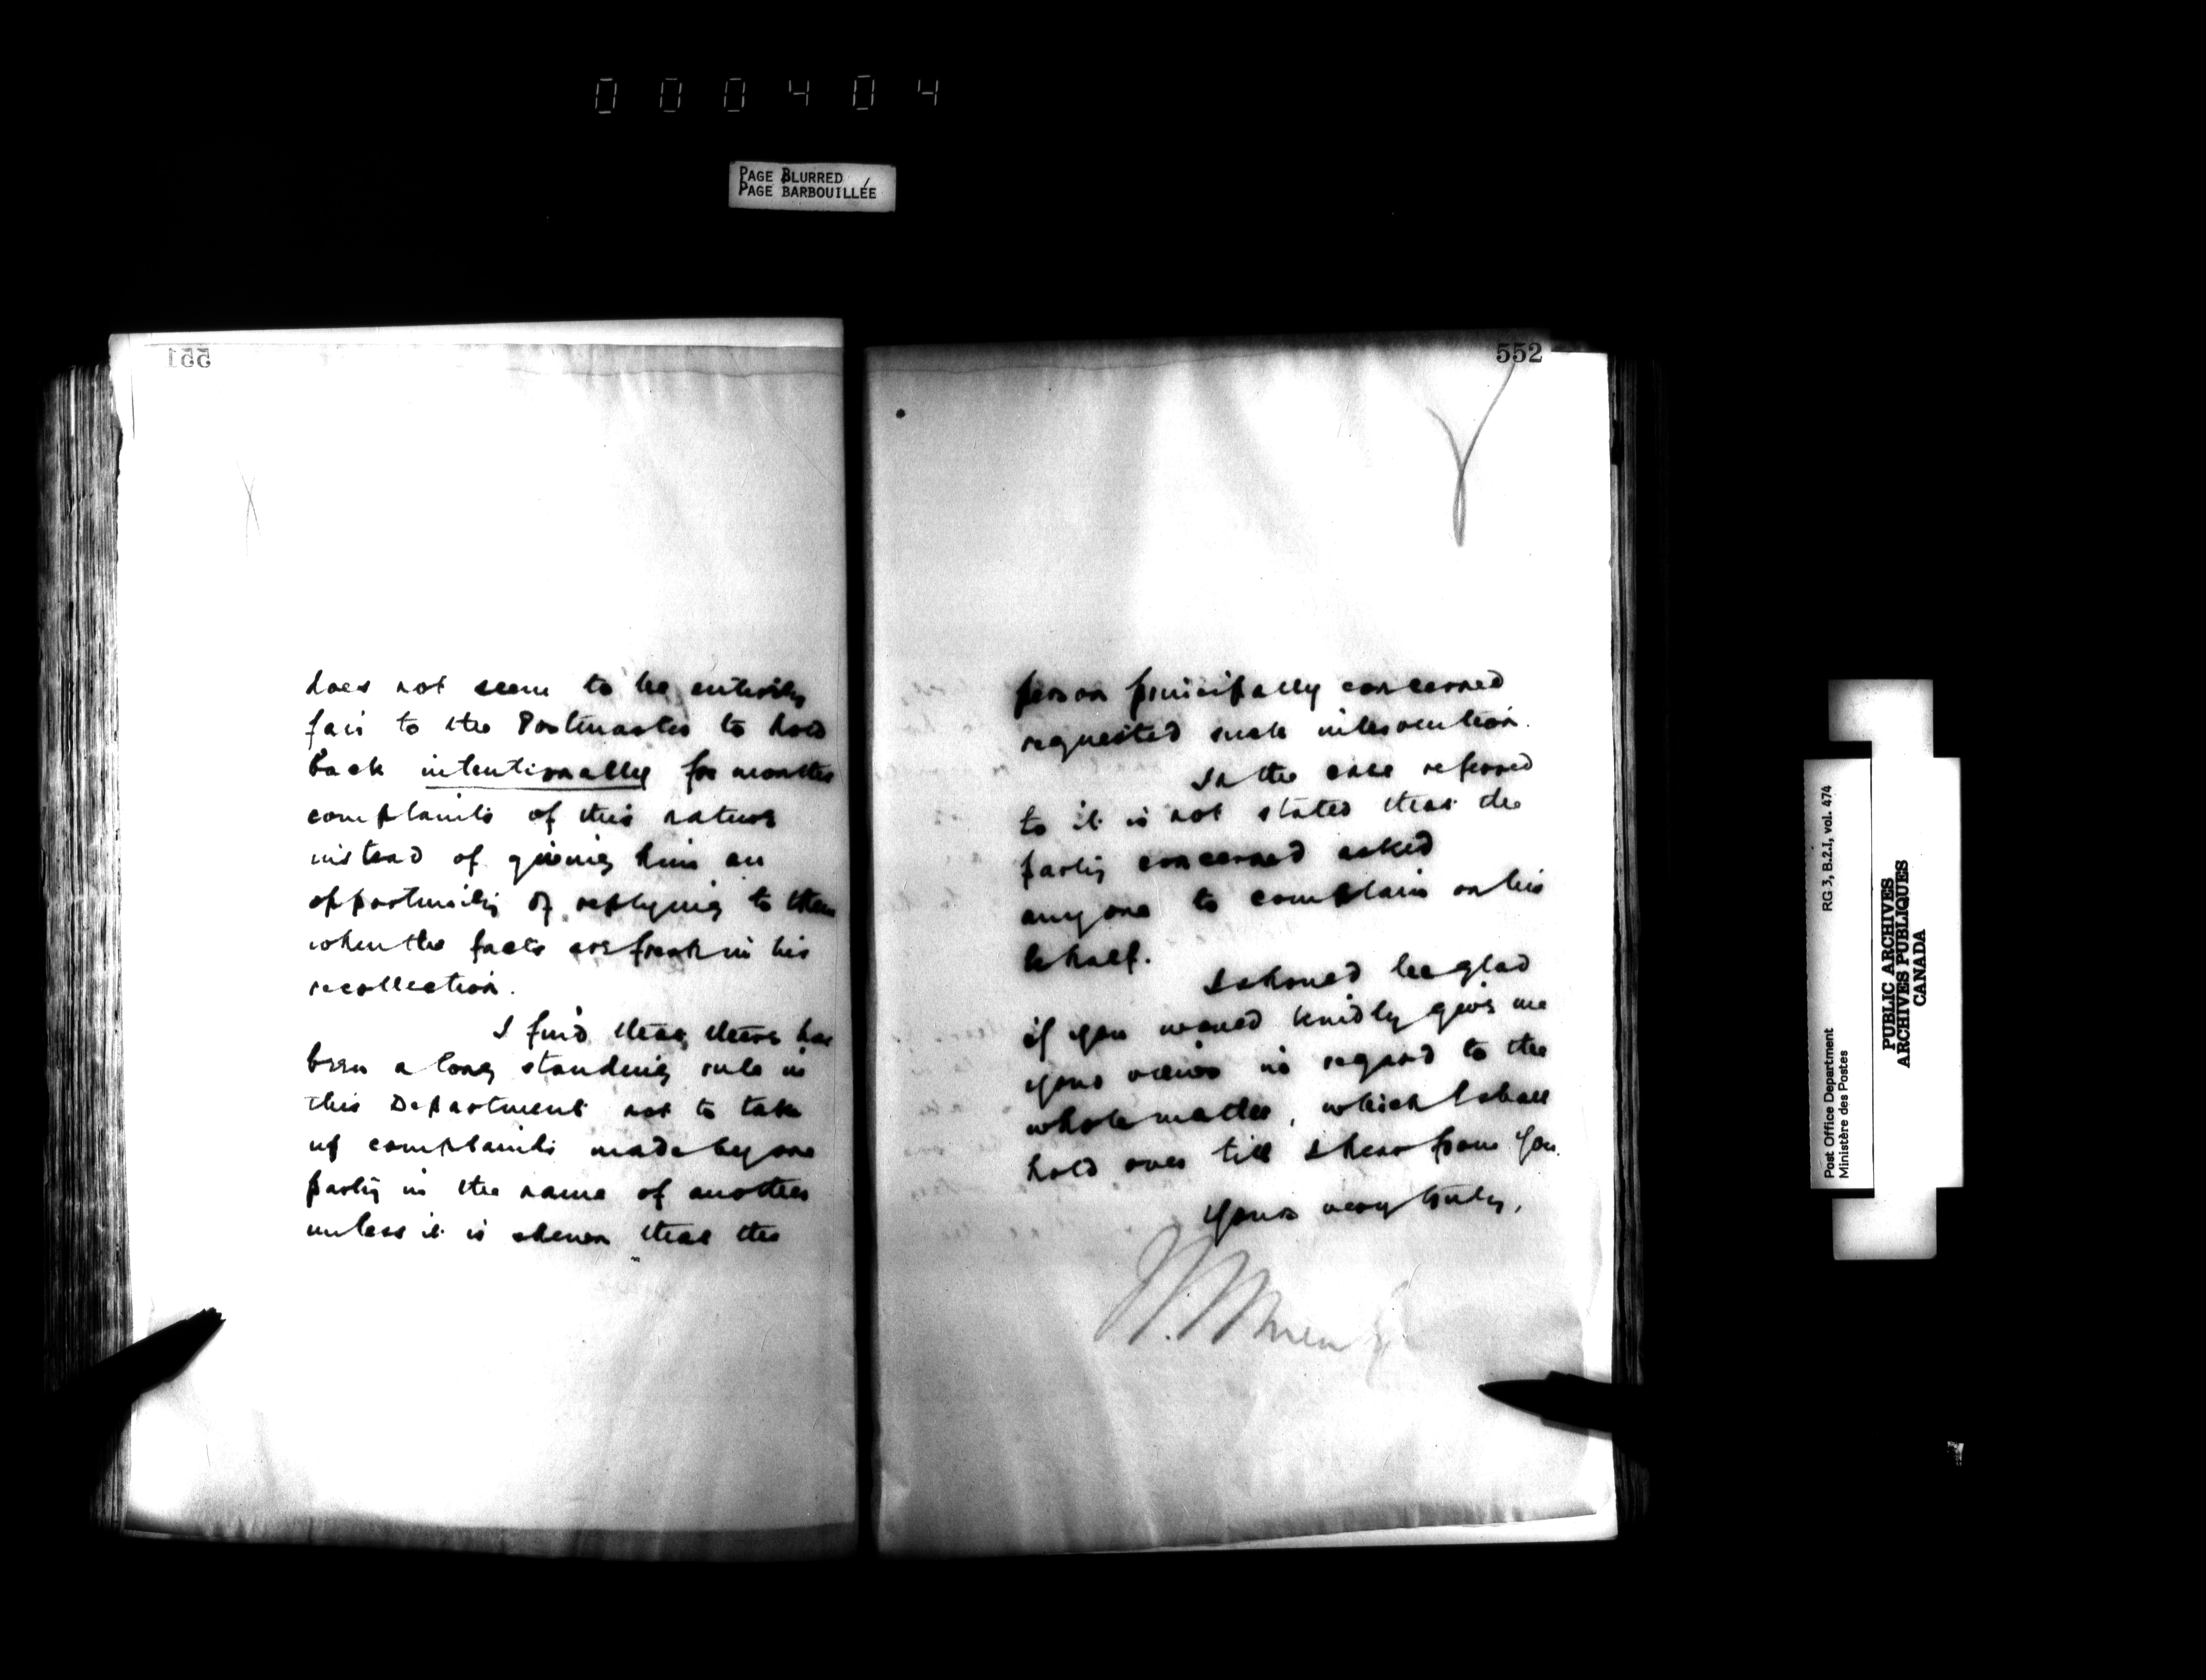 000404
PAGE BLURRED
PAGE BARBOUILLÉE
551
does not seem to be entirely
fair to the Postmaster to hold
back intentionally for months
complaints of this nature
instead of giving him an
opportunity of replying to them
when the facts are fresh in his
recollection.
I find that there has
been a long standing rule in
this Department not to take
up complaints made by one
party in the name of another
unless it is shewn that the
552
person principally concerned
requested such intervention.
In the case referred
to it is not stated that the
party concerned asked
any one to complain on his
behalf.
I should be glad
if you would kindly give me
your views in regard to the
whole matter, which I shall
hold over till I hear from you.
Yours very truly,
Post Office Department RG 3, B.2.1, vol. 474
Ministère des Postes
PUBLIC ARCHIVES
ARCHIVES PUBLIQUES
CANADA